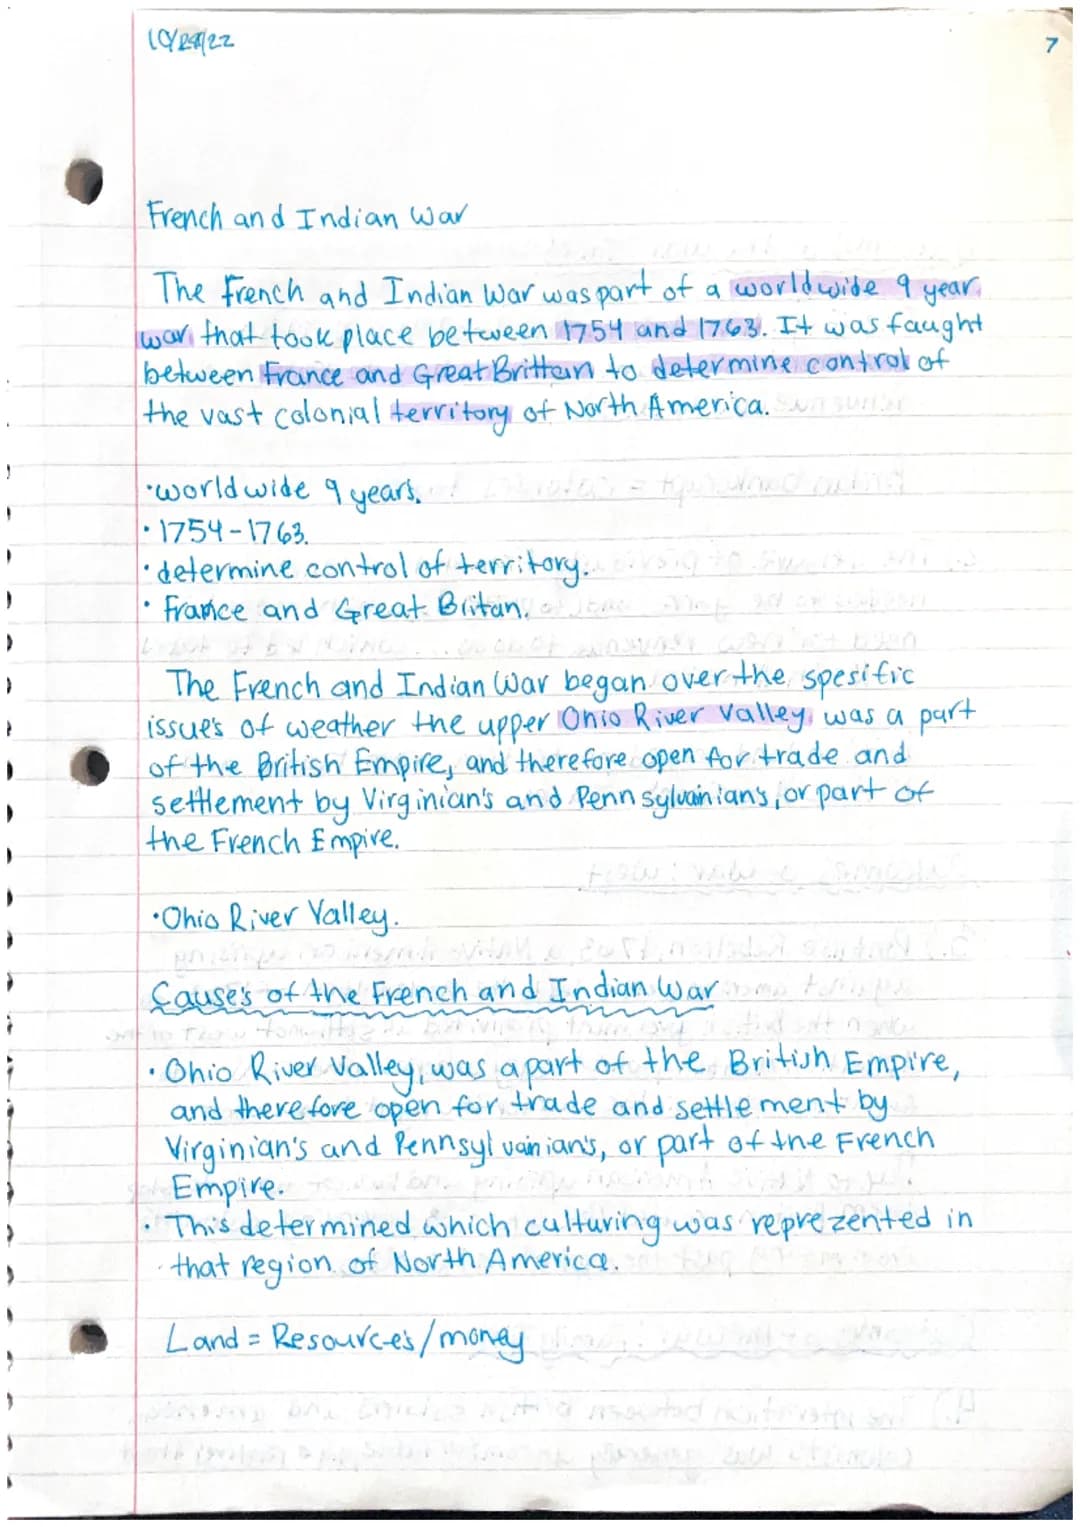 7
French and Indian War
The French and Indian War was part of a worldwide 9 year
war that took place between 1754 and 1763. It was faught
between France and Great Brittan to determine control of
the vast colonial territory of North America.
·worldwide 9 years.
·1754-1763.
·determine control of territory.
·France and Great Britan.
The French and Indian War began over the spesific
issue's of weather the upper Ohio River Valley was a part
of the British Empire, and therefore open for trade and
settlement by Virginian's and Pennsylvainians, or part of
the French Empire.
·Ohio River Valley.
Cause's of the French and Indian War
·Ohio River Valley, was a part of the British Empire,
and therefore open for trade and settlement by
Virginian's and Pennsylvainian's, or part of the French
Empire.
·This determined which culturing was reprezented in
that region of North America.
Land = Resource's/money